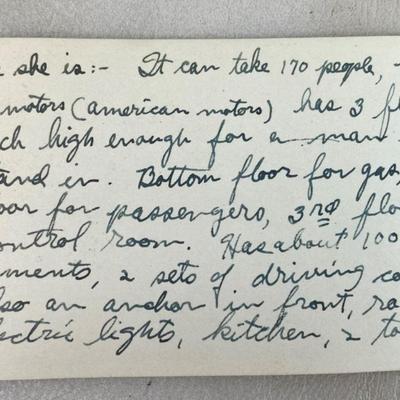 e she is:- It can take 170 people,
motors (american motors) has 3 fl
ch high enough for a man
and in. Bottom floor for gas,
oor for passengers, 3rd flo
ontrol room. Has about 100
ments, 2 sets of driving co
lso an anchor in front, ra
ectric lights, kitchen, 2 to